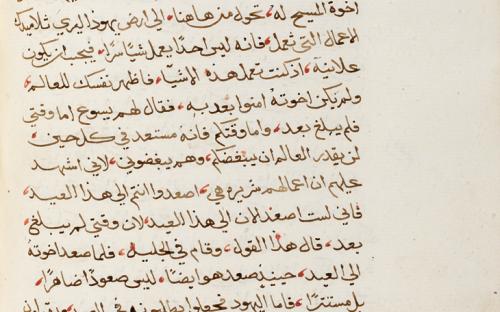 اخوة المسيح له، تحول من هاهنا، الي ارض يهوذا ليري تلاميدك
الاعمال التي تعمل، فانه ليس احدًا يعمل شيًا سرًا، فيحب ان يكون
علانية، ان كنت تعمل هذه الاشيا، فاظهر نفسك للعالم،
ولم يكن اخوته امنوا بعد به، فقال لهم يسوع اما وقتي
فلم يبلغ بعد، واما وقتكم فانه مستعد في كل حين،
لن يقدر العالم ان يبغضكم، وهم يبغضوني، لاني اشهد
عليهم ان اعمالهم شريره هي، اصعدوا انتم الي هذا العيد،
فاني لست اصعد الان الي هذا العيد، لان وقتي لم يبلغ
بعد، قال هذا القول، وقام في الجليل، فلما صعد اخوته
الي العيد، حينيذ صعد هو ايضًا، ليس صعودًا ضاهرًا،
بل مستترًا، فاما اليهود فجعلوا يطلبونه في العيد